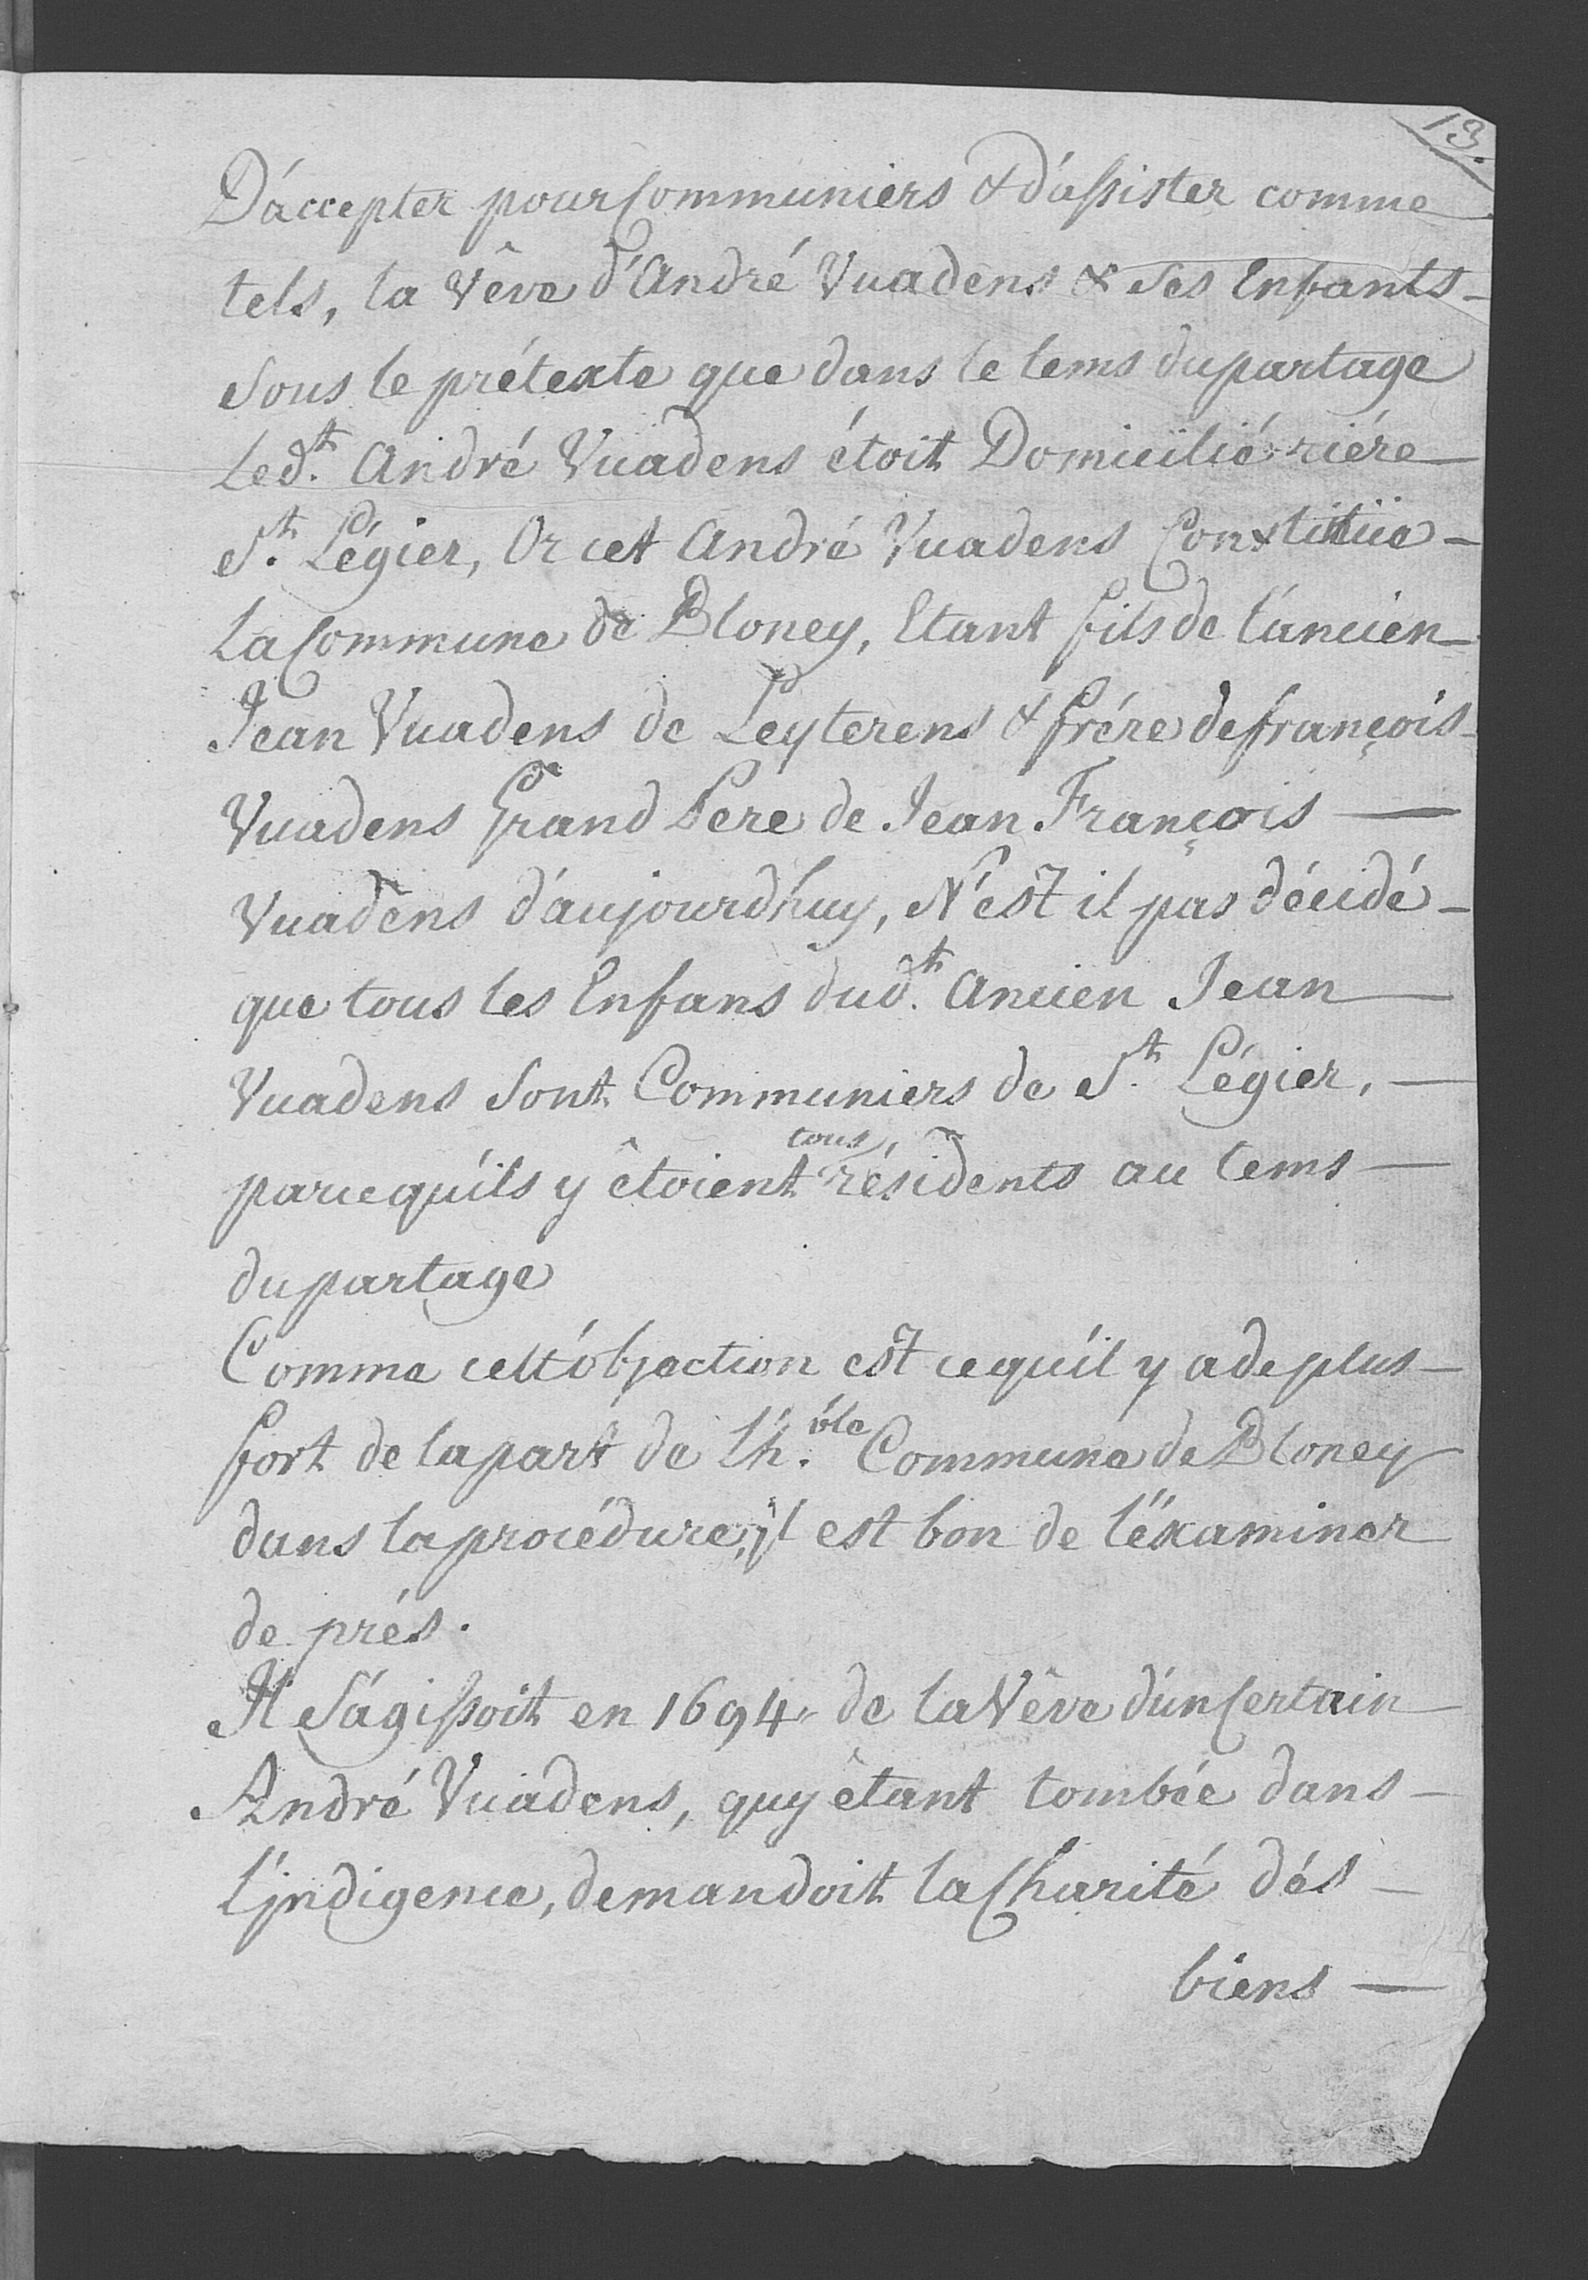 13.
D'accepter pour Communiers & d'assister comme
tels, la Vêve d'André Vuadens & ses Enfants -
sous le prétexte que dans le tems du partage
Led.t André Vuadens étoit Domicilié riére -
S.t Légier, Or cet André Vuadens Constitüe -
La Commune de Bloney, Etant fils de l'ancien -
Jean Vuadens de Leyterens & frére de françois -
Vuadens Grand Pere de Jean François —
Vuadens d'aujourdhuy, N'est il pas décidé -
que tous les Enfans dud.t ancien Jean —
Vuadens sont Communiers de S.t Légier, —
parcequ'ils y êtoient tous résidents au tems —
du partage
Comme cett'objection est cequ'il y a de plus -
fort de la part de l'h.ble Commune de Bloney
dans la procédure, jl est bon de l'éxaminer
de prés.
Il s'agissoit en 1694 de la Vêve d'un Certain
André Vuadens, quy êtant tombée dans -
l'jndigence, demandoit la Charité dés -
biens —